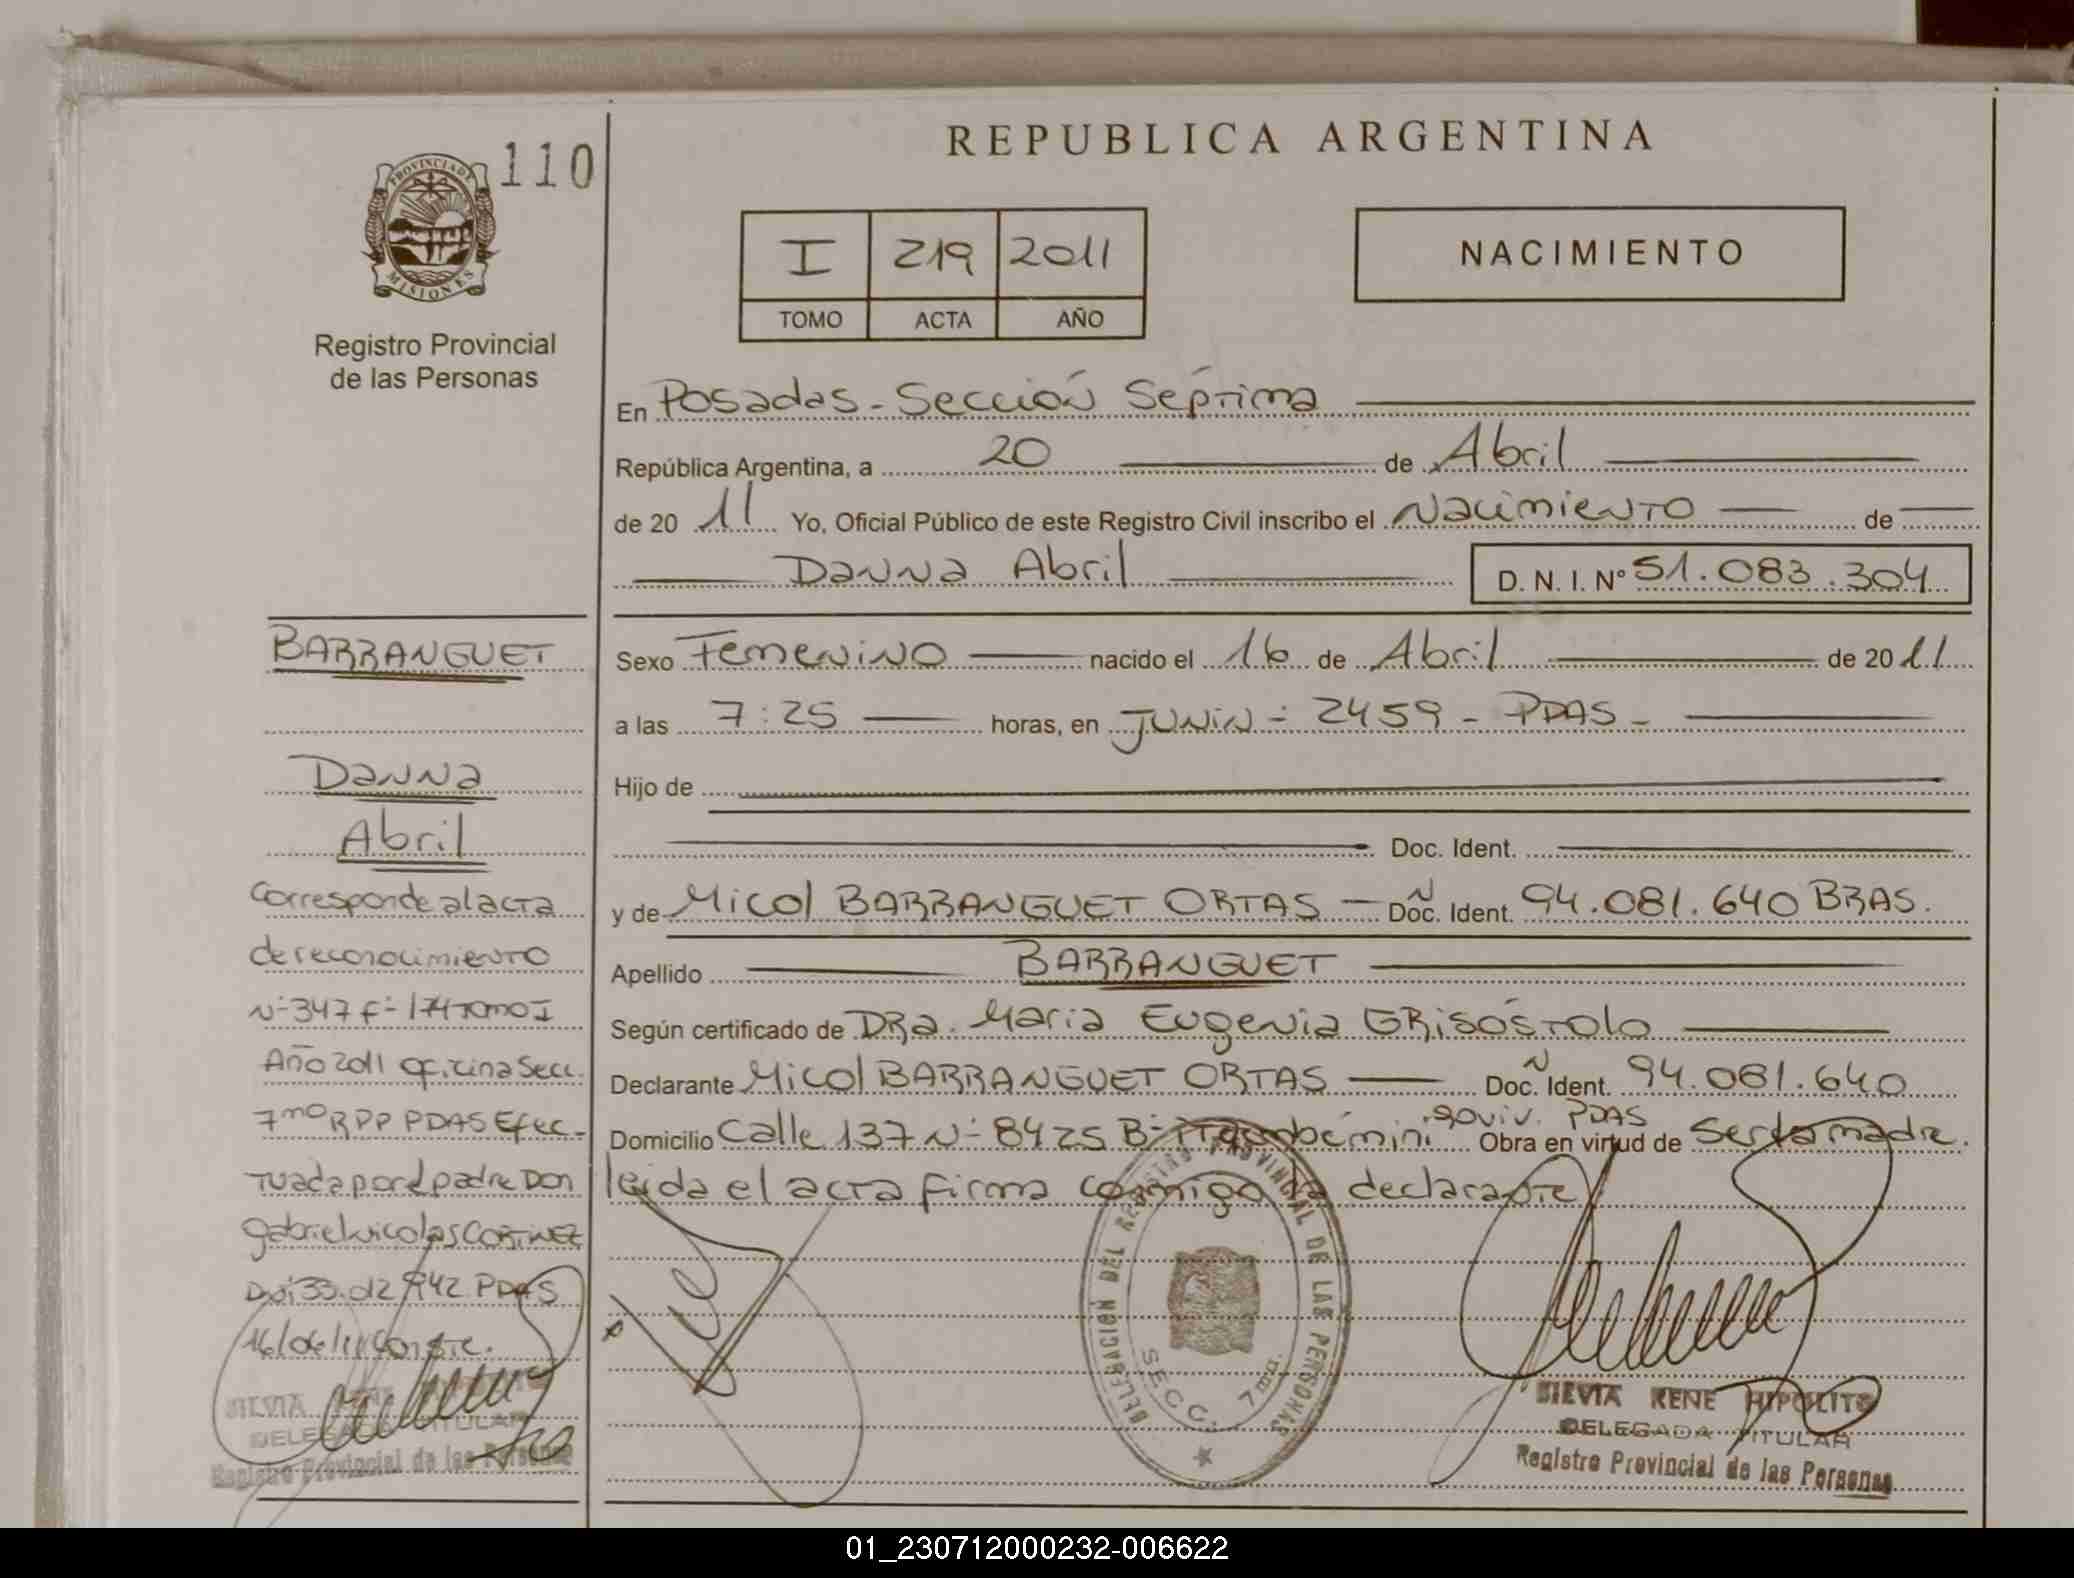 REPUBLICA ARGENTINA
110
PROVINCIA DE
MISIONES
Registro Provincial
de las Personas
I 219 2011
TOMO ACTA AÑO
NACIMIENTO
En Posadas - Sección Séptima
República Argentina, a 20 de Abril
de 20 11 Yo, Oficial Público de este Registro Civil inscribo el Nacimiento de
Danna Abril D. N. I. N° 51.083.304
Sexo Femenino nacido el 16 de Abril de 20 11
a las 7:25 horas, en Junin - 2459 - PDAS -
Hijo de
Doc. Ident.
y de Micol BARRANGUET ORTAS Doc. Ident. 94.081.640 BRAS.
Apellido BARRANGUET
Según certificado de DRa. Maria Eugenia GRISÓSTOLO
Declarante Micol BARRANGUET ORTAS Doc. Ident. 94.081.640
Domicilio Calle 137 N- 8425 B- Itaembé mini. PDAS Obra en virtud de ser la madre.
leida el acta firma conmigo la declarante
BARRANGUET
Danna
Abril
Corresponde al acta
de reconocimiento
N- 347 F- 174 Tomo I
Año 2011 oficina Secc.
7mo RPP PDAS Efec-
tuada por el padre Don
gabriel Nicolas CORTINEZ
Dni 33.012.942 PDAS
16/06/11 Conste.
SILVIA RENE HIPOLITO
DELEGADA TITULAR
Registro Provincial de las Personas
DELEGACION DEL REGISTRO PROVINCIAL DE LAS PERSONAS
SECC. 7ma.
SILVIA RENE HIPOLITO
DELEGADA TITULAR
Registro Provincial de las Personas
01_230712000232-006622